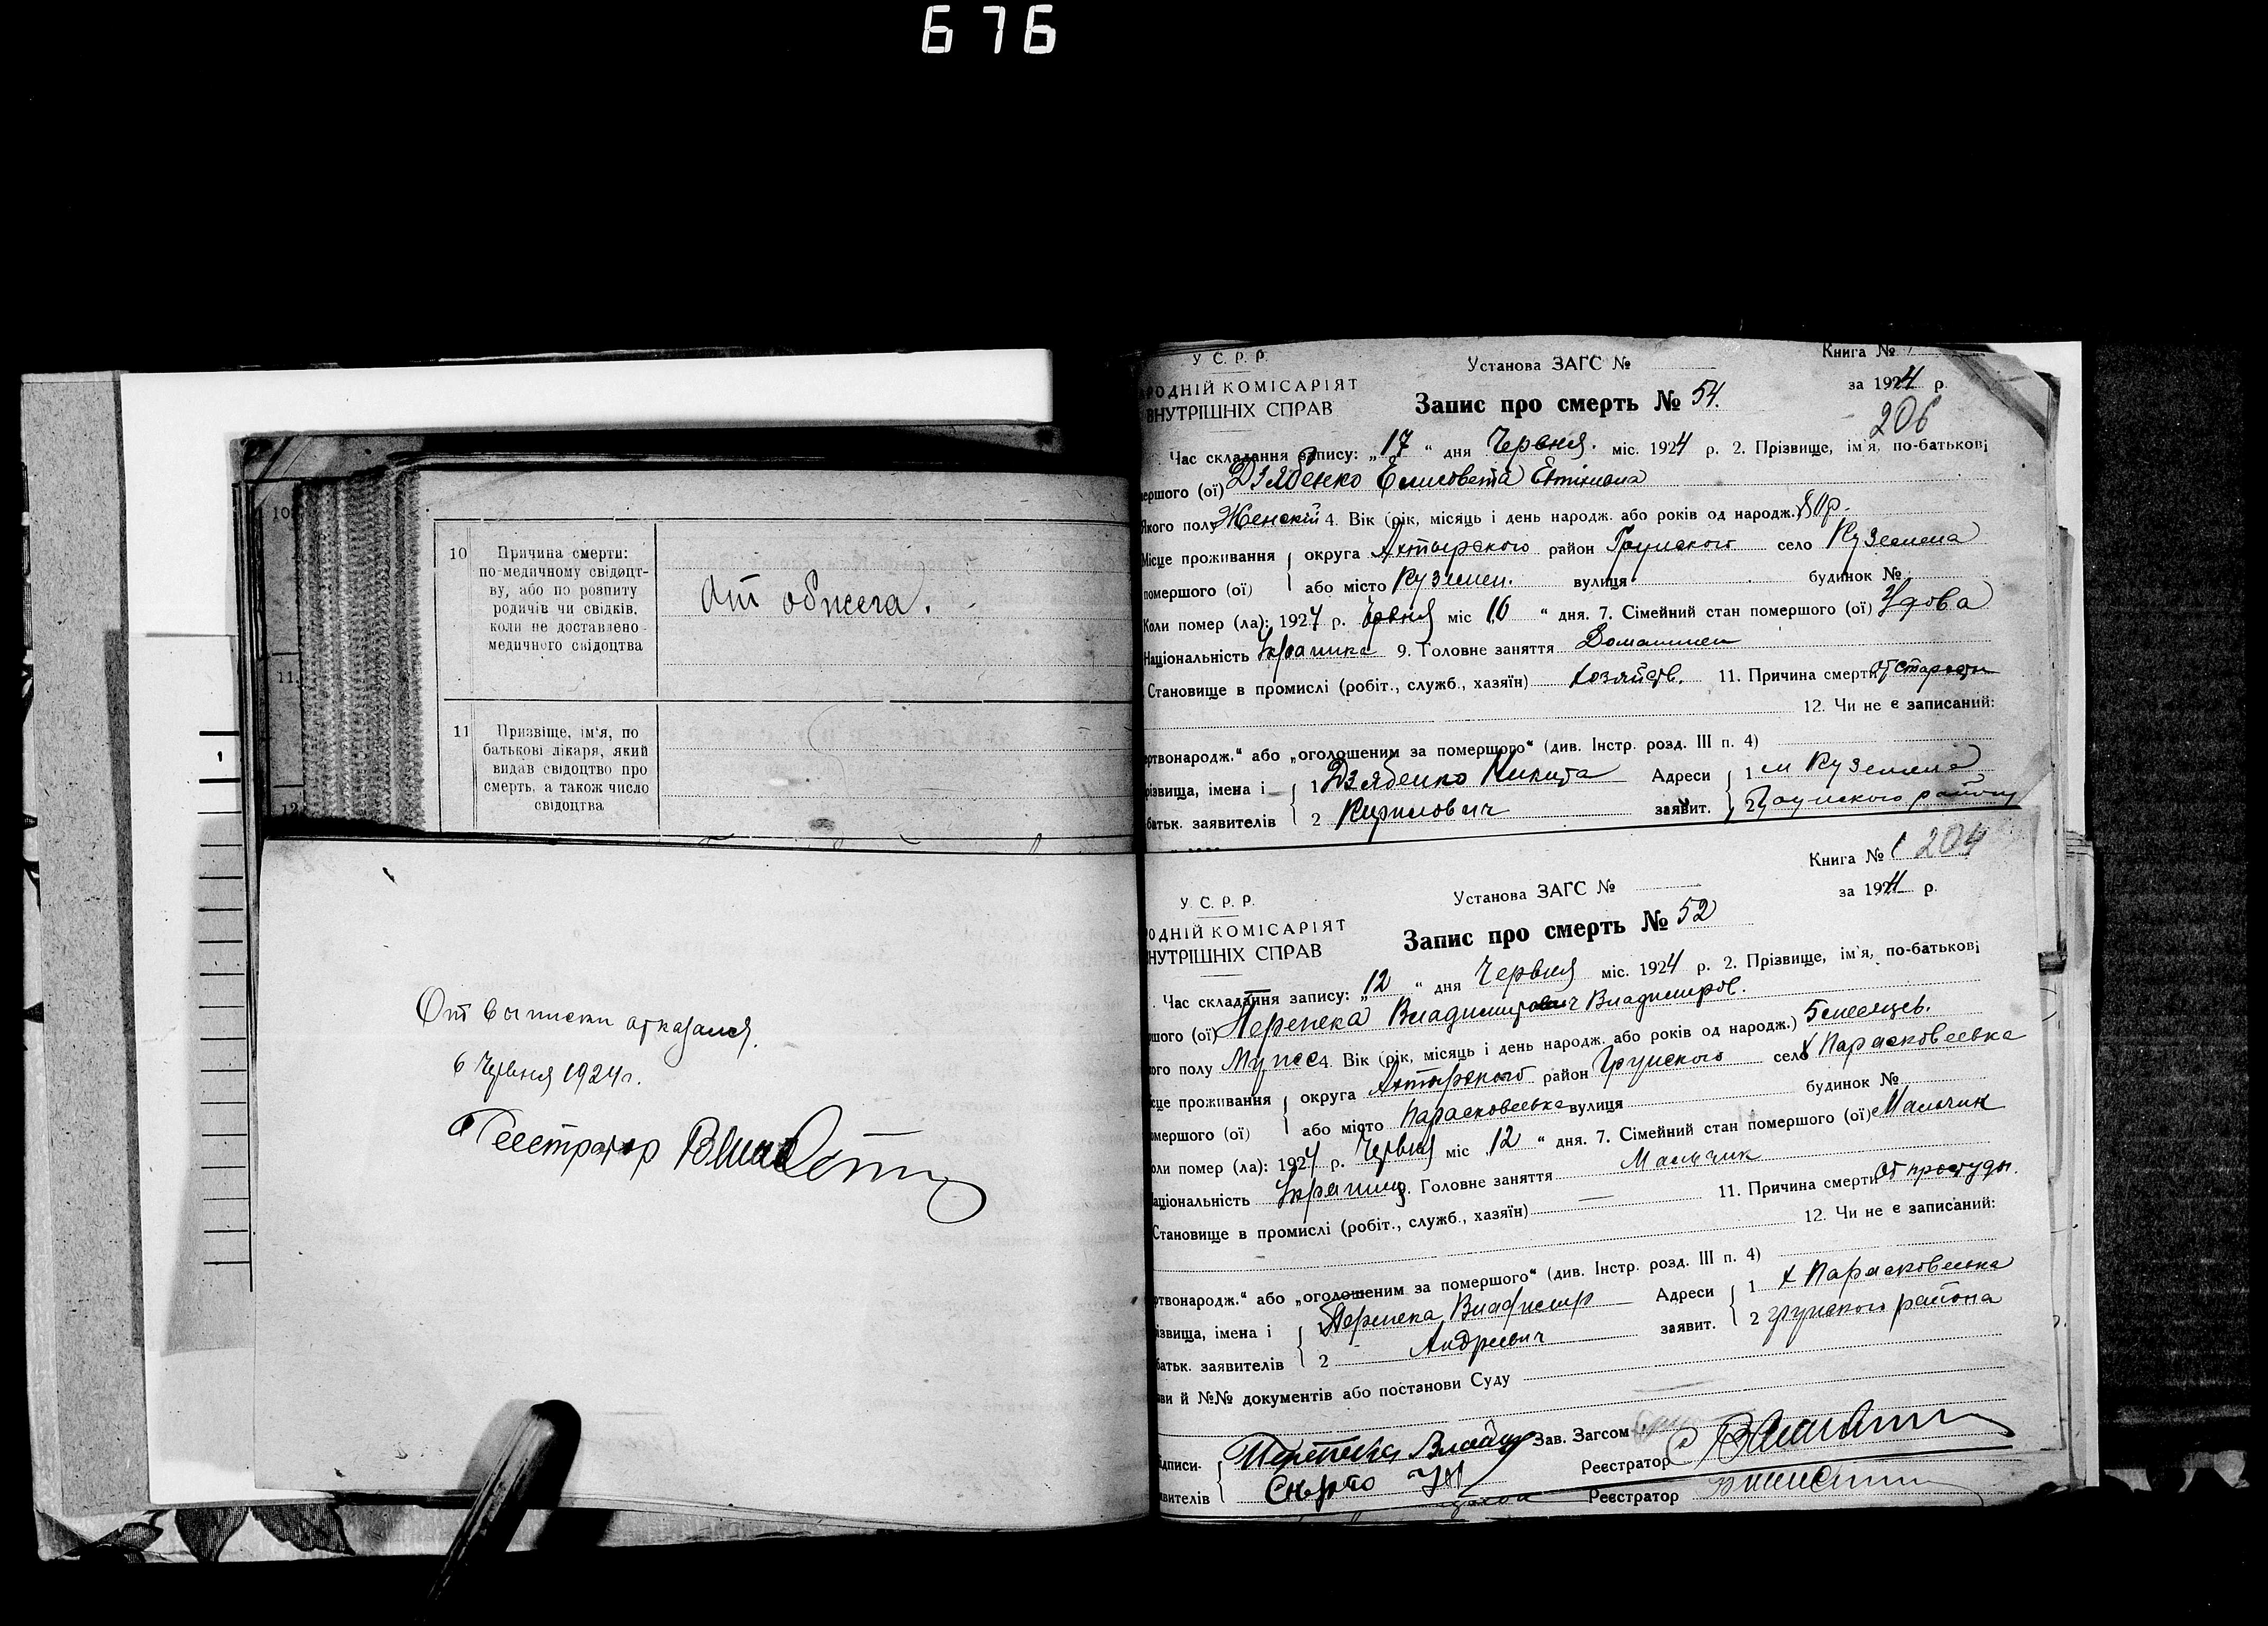 676
10
10 Причина смерти:
по медичному свідоцт-
ву, або по розпиту
родичів чи свідків,
коли не доставлено
медичного свідоцтва
От обжега.
11
11 Призвіще, ім'я, по
батькові лікаря, який
видав свідоцтво про
смерть, а також число
свідоцтва
12
1
От выписки отказался.
6 Червня 1924 г.
Реестратор
У. С. Р. Р.
РОДНІЙ КОМІСАРІЯТ
ВНУТРІШНІХ СПРАВ
Установа ЗАГС №
Запис про смерть № 54.
Книга №
за 1924 р.
206
Час складання запису: „17 “ дня Червня. міс. 1924 р. 2. Прізвище, ім'я, по-батькові
ершого (ої) Дзябенко Елисовета
Якого полу Женскій 4. Вік (рік, місяць і день народж. або років од народж.) 80 р.
Місце проживання округа Ахтырского район Грунского село Куземена
помершого (ої) або місто Куземен. вулиця будинок №
Коли помер (ла): 1924 р. Червня міс 16 “ дня. 7. Сімейний стан помершого (ої) Удова
Національність 9. Головне заняття Домашнем
Становище в промислі (робіт., служб., хазяїн) хозяйств. 11. Причина смерти от старости
12. Чи не є записаний:
ртвонародж.“ або „оголошеним за помершого“ (див. Інстр. розд. III п. 4)
різвища, імена і 1 Дзябенко Микита Адреси 1 м Куземена
батьк. заявителів 2 Кирилович заявит. 2 Грунского району
Книга № 1 204
за 1924 р.
У. С. Р. Р.
ОДНІЙ КОМІСАРІЯТ
НУТРІШНІХ СПРАВ
Установа ЗАГС №
Запис про смерть № 52
Час складання запису: „12 “ дня Червня міс. 1924 р. 2. Прізвище, ім'я, по-батькові
шого (ої) Перепека Владимир Владимиров.
ого полу Мужс 4. Вік (рік, місяць і день народж. або років од народж.) 5 месяцев.
сце проживання округа Ахтырского район Грунского село х Парасковеевка
омершого (ої) або місто Парасковеевка вулиця будинок №
оли помер (ла): 1924 р. Червня міс 12 “ дня. 7. Сімейний стан помершого (ої) Мальчик
аціональність . Головне заняття Мальчик
Становище в промислі (робіт., служб., хазяїн) — 11. Причина смерти от простуды.
12. Чи не є записаний:
ртвонародж.“ або „оголошеним за помершого“ (див. Інстр. розд. III п. 4)
ізвища, імена і Перепека Владимир Адреси 1 х Парасковеевка
батьк. заявителів 2 Андреевич заявит. 2 Грунского района
ви й №№ документів або постанови Суду
ідписи- Перепека Зав. Загсом
Реєстратор
явителів
Реєстратор